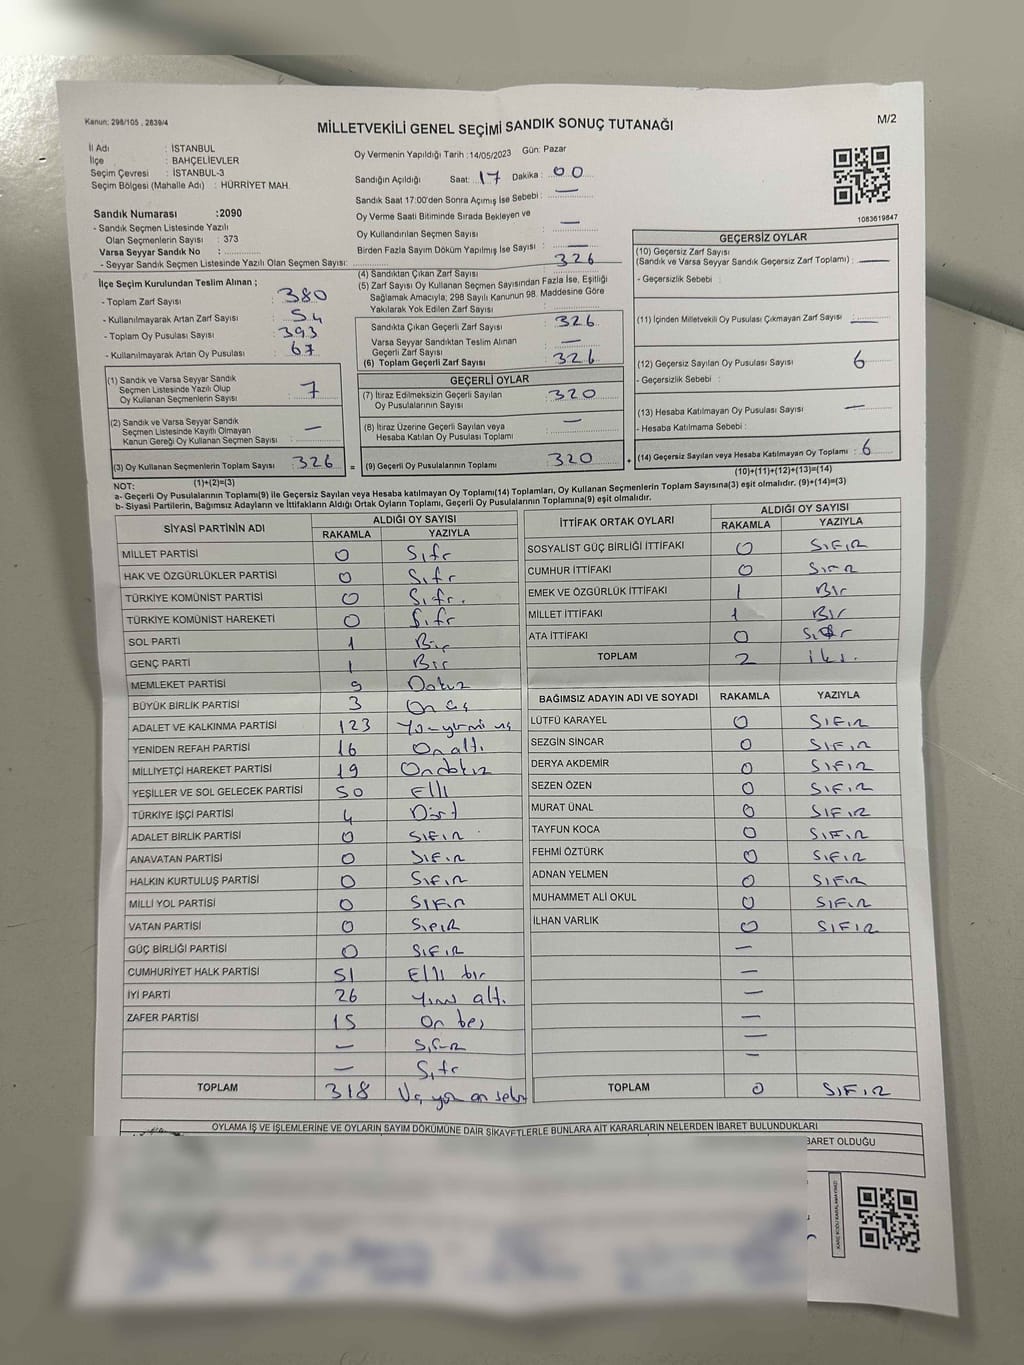 Kanun; 298/105 , 2839/4
M/2
MİLLETVEKİLİ GENEL SEÇİMİ SANDIK SONUÇ TUTANAĞI
İl Adı : İSTANBUL
İlçe : BAHÇELİEVLER
Seçim Çevresi : İSTANBUL-3
Seçim Bölgesi (Mahalle Adı) : HÜRRİYET MAH.
Sandık Numarası :2090
- Sandık Seçmen Listesinde Yazılı
Olan Seçmenlerin Sayısı : 373
Varsa Seyyar Sandık No :
- Seyyar Sandık Seçmen Listesinde Yazılı Olan Seçmen Sayısı:
İlçe Seçim Kurulundan Teslim Alınan ;
- Toplam Zarf Sayısı : 380
- Kullanılmayarak Artan Zarf Sayısı : 54
- Toplam Oy Pusulası Sayısı : 393
- Kullanılmayarak Artan Oy Pusulası : 67
(1) Sandık ve Varsa Seyyar Sandık
Seçmen Listesinde Yazılı Olup
Oy Kullanan Seçmenlerin Sayısı : 7
(2) Sandık ve Varsa Seyyar Sandık
Seçmen Listesinde Kayıtlı Olmayan
Kanun Gereği Oy Kullanan Seçmen Sayısı : —
(3) Oy Kullanan Seçmenlerin Toplam Sayısı : 326
Oy Vermenin Yapıldığı Tarih :14/05/2023 Gün: Pazar
Sandığın Açıldığı Saat: 17 Dakika : 00
Sandık Saat 17:00'den Sonra Açımış İse Sebebi : —
Oy Verme Saati Bitiminde Sırada Bekleyen ve
Oy Kullandırılan Seçmen Sayısı : —
Birden Fazla Sayım Döküm Yapılmış İse Sayısı : —
(4) Sandıktan Çıkan Zarf Sayısı : 326
(5) Zarf Sayısı Oy Kullanan Seçmen Sayısından Fazla İse, Eşitliği
Sağlamak Amacıyla; 298 Sayılı Kanunun 98. Maddesine Göre
Yakılarak Yok Edilen Zarf Sayısı :
Sandıkta Çıkan Geçerli Zarf Sayısı : 326
Varsa Seyyar Sandıktan Teslim Alınan
Geçerli Zarf Sayısı : —
(6) Toplam Geçerli Zarf Sayısı : 326
GEÇERLİ OYLAR
(7) İtiraz Edilmeksizin Geçerli Sayılan
Oy Pusulalarının Sayısı : 320
(8) İtiraz Üzerine Geçerli Sayılan veya
Hesaba Katılan Oy Pusulası Toplamı : —
= (9) Geçerli Oy Pusulalarının Toplamı 320
1083619847
GEÇERSİZ OYLAR
(10) Geçersiz Zarf Sayısı
(Sandık ve Varsa Seyyar Sandık Geçersiz Zarf Toplamı) : —
- Geçersizlik Sebebi :
(11) İçinden Milletvekili Oy Pusulası Çıkmayan Zarf Sayısı : —
(12) Geçersiz Sayılan Oy Pusulası Sayısı : 6
- Geçersizlik Sebebi :
(13) Hesaba Katılmayan Oy Pusulası Sayısı : —
- Hesaba Katılmama Sebebi :
+ (14) Geçersiz Sayılan veya Hesaba Katılmayan Oy Toplamı : 6
NOT: (1)+(2)=(3)
(10)+(11)+(12)+(13)=(14)
a- Geçerli Oy Pusulalarının Toplamı(9) ile Geçersiz Sayılan veya Hesaba katılmayan Oy Toplamı(14) Toplamları, Oy Kullanan Seçmenlerin Toplam Sayısına(3) eşit olmalıdır. (9)+(14)=(3)
b- Siyasi Partilerin, Bağımsız Adayların ve İttifakların Aldığı Ortak Oyların Toplamı, Geçerli Oy Pusulalarının Toplamına(9) eşit olmalıdır.
SİYASİ PARTİNİN ADI ALDIĞI OY SAYISI
RAKAMLA YAZIYLA
MİLLET PARTİSİ 0 Sıfır
HAK VE ÖZGÜRLÜKLER PARTİSİ 0 Sıfır
TÜRKİYE KOMÜNİST PARTİSİ 0 Sıfır.
TÜRKİYE KOMÜNİST HAREKETİ 0 Sıfır
SOL PARTİ 1 Bir
GENÇ PARTİ 1 Bir
MEMLEKET PARTİSİ 9 Dokuz
BÜYÜK BİRLİK PARTİSİ 3
ADALET VE KALKINMA PARTİSİ 123 Yüzyirmi üç
YENİDEN REFAH PARTİSİ 16 On altı
MİLLİYETÇİ HAREKET PARTİSİ 19 Ondokuz
YEŞİLLER VE SOL GELECEK PARTİSİ 50 Elli
TÜRKİYE İŞÇİ PARTİSİ 4 Dört
ADALET BİRLİK PARTİSİ 0 SIFIR
ANAVATAN PARTİSİ 0 SIFIR
HALKIN KURTULUŞ PARTİSİ 0 SIFIR
MİLLİ YOL PARTİSİ 0 SIFIR
VATAN PARTİSİ 0 SIFIR
GÜÇ BİRLİĞİ PARTİSİ 0 SIFIR
CUMHURİYET HALK PARTİSİ 51 Elli bir
İYİ PARTİ 26 Yirmi altı
ZAFER PARTİSİ 15 On beş
— SIFIR
— Sıfır
TOPLAM 318 Üç yüz on sekiz
İTTİFAK ORTAK OYLARI ALDIĞI OY SAYISI
RAKAMLA YAZIYLA
SOSYALİST GÜÇ BİRLİĞİ İTTİFAKI 0 SIFIR
CUMHUR İTTİFAKI 0 SIFIR
EMEK VE ÖZGÜRLÜK İTTİFAKI 1 Bir
MİLLET İTTİFAKI 1 Bir
ATA İTTİFAKI 0 Sıfır
TOPLAM 2 iki.
BAĞIMSIZ ADAYIN ADI VE SOYADI RAKAMLA YAZIYLA
LÜTFÜ KARAYEL 0 SIFIR
SEZGİN SİNCAR 0 SIFIR
DERYA AKDEMİR 0 SIFIR
SEZEN ÖZEN 0 SIFIR
MURAT ÜNAL 0 SIFIR
TAYFUN KOCA 0 SIFIR
FEHMİ ÖZTÜRK 0 SIFIR
ADNAN YELMEN 0 SIFIR
MUHAMMET ALİ OKUL 0 SIFIR
İLHAN VARLIK 0 SIFIR
—
—
—
—
—
—
TOPLAM 0 SIFIR
OYLAMA İŞ VE İŞLEMLERİNE VE OYLARIN SAYIM DÖKÜMÜNE DAİR ŞİKAYETLERLE BUNLARA AİT KARARLARIN NELERDEN İBARET BULUNDUKLARI
BARET OLDUĞU